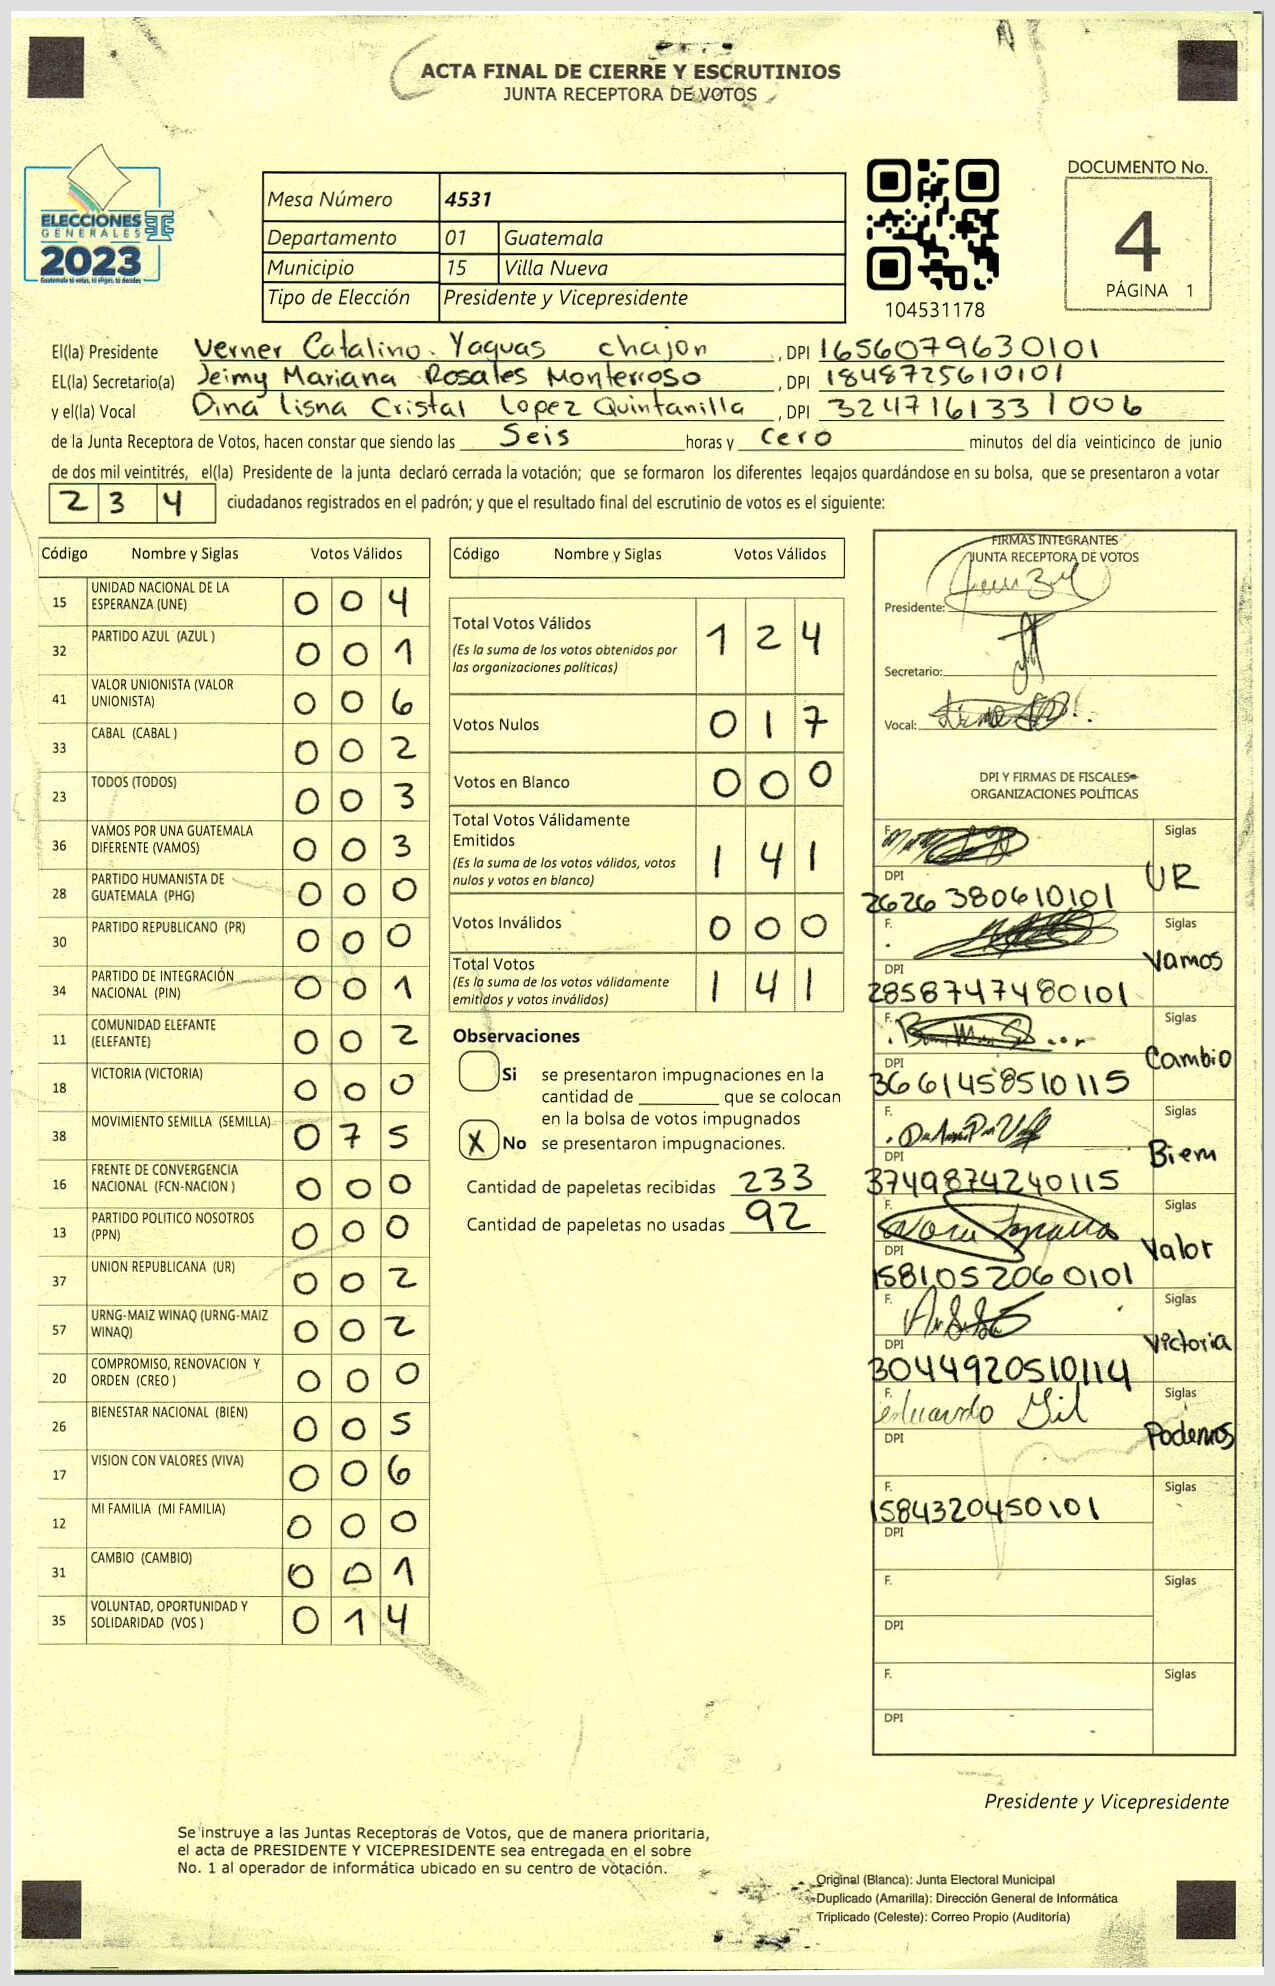 ACTA FINAL DE CIERRE Y ESCRUTINIOS
JUNTA RECEPTORA DE VOTOS
ELECCIONES
GENERALES
2023
Guatemala tú votas, tú eliges, tú decides
Mesa Número 4531
Departamento 01 Guatemala
Municipio 15 Villa Nueva
Tipo de Elección Presidente y Vicepresidente
104531178
DOCUMENTO No.
4
PÁGINA 1
El(la) Presidente Verner Catalino Yaquas chajon , DPI 1656079630101
EL(la) Secretario(a) Jeimy Mariana Rosales Monterroso , DPI 1848725610101
y el(la) Vocal Dina lisna Cristal Lopez Quintanilla , DPI 3247161331006
de la Junta Receptora de Votos, hacen constar que siendo las Seis horas y cero minutos del día veinticinco de junio
de dos mil veintitrés, el(la) Presidente de la junta declaró cerrada la votación; que se formaron los diferentes legajos guardándose en su bolsa, que se presentaron a votar
2 3 4 ciudadanos registrados en el padrón; y que el resultado final del escrutinio de votos es el siguiente:
Código Nombre y Siglas Votos Válidos
15 UNIDAD NACIONAL DE LA ESPERANZA (UNE) 0 0 4
32 PARTIDO AZUL (AZUL ) 0 0 1
41 VALOR UNIONISTA (VALOR UNIONISTA) 0 0 6
33 CABAL (CABAL ) 0 0 2
23 TODOS (TODOS) 0 0 3
36 VAMOS POR UNA GUATEMALA DIFERENTE (VAMOS) 0 0 3
28 PARTIDO HUMANISTA DE GUATEMALA (PHG) 0 0 0
30 PARTIDO REPUBLICANO (PR) 0 0 0
34 PARTIDO DE INTEGRACIÓN NACIONAL (PIN) 0 0 1
11 COMUNIDAD ELEFANTE (ELEFANTE) 0 0 2
18 VICTORIA (VICTORIA) 0 0 0
38 MOVIMIENTO SEMILLA (SEMILLA) 0 7 5
16 FRENTE DE CONVERGENCIA NACIONAL (FCN-NACION ) 0 0 0
13 PARTIDO POLITICO NOSOTROS (PPN) 0 0 0
37 UNION REPUBLICANA (UR) 0 0 2
57 URNG-MAIZ WINAQ (URNG-MAIZ WINAQ) 0 0 2
20 COMPROMISO, RENOVACION Y ORDEN (CREO ) 0 0 0
26 BIENESTAR NACIONAL (BIEN) 0 0 5
17 VISION CON VALORES (VIVA) 0 0 6
12 MI FAMILIA (MI FAMILIA) 0 0 0
31 CAMBIO (CAMBIO) 0 0 1
35 VOLUNTAD, OPORTUNIDAD Y SOLIDARIDAD (VOS ) 0 1 4
Código Nombre y Siglas Votos Válidos
Total Votos Válidos 1 2 4
(Es la suma de los votos obtenidos por
las organizaciones políticas)
Votos Nulos 0 1 7
Votos en Blanco 0 0 0
Total Votos Válidamente
Emitidos 1 4 1
(Es la suma de los votos válidos, votos
nulos y votos en blanco)
Votos Inválidos 0 0 0
Total Votos 1 4 1
(Es la suma de los votos válidamente
emitidos y votos inválidos)
Observaciones
Si se presentaron impugnaciones en la
cantidad de ________ que se colocan
en la bolsa de votos impugnados
X No se presentaron impugnaciones.
Cantidad de papeletas recibidas 233
Cantidad de papeletas no usadas 92
FIRMAS INTEGRANTES
JUNTA RECEPTORA DE VOTOS
Presidente:
Secretario:
Vocal:
DPI Y FIRMAS DE FISCALES
ORGANIZACIONES POLÍTICAS
F. Siglas
DPI UR
2626380610101
F. Siglas
DPI Vamos
2858747480101
F. Siglas
DPI Cambio
3661458510115
F. Siglas
DPI Biem
3749874240115
F. Siglas
DPI Valor
1581052060101
F. Siglas
DPI Victoria
3044920510114
F. eduardo Gil Siglas
DPI Podemos
F. Siglas
1584320450101
DPI
F. Siglas
DPI
F. Siglas
DPI
Presidente y Vicepresidente
Se instruye a las Juntas Receptoras de Votos, que de manera prioritaria,
el acta de PRESIDENTE Y VICEPRESIDENTE sea entregada en el sobre
No. 1 al operador de informática ubicado en su centro de votación.
Original (Blanca): Junta Electoral Municipal
Duplicado (Amarilla): Dirección General de Informática
Triplicado (Celeste): Correo Propio (Auditoría)